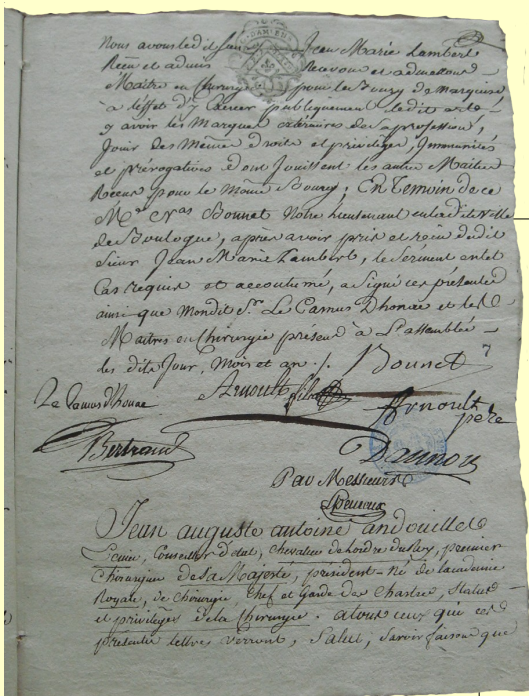 Nous avons led. Sieur Jean Marie Lambert
Reçu et admis Recevons et admettons
Maitre en Chirurgie pour le Bourg de Marquise
à l'effet d'y Exercer publiquement ledit art
y avoir les Marques extérieures de sa profession,
Jouir des Mêmes droits et privilèges, Immunités
et prérogatives dont Jouissent les autres Maitres
Reçus pour le Même Bourg, En Temoin de ce
Mr. Bonnet Notre lieutenant en lad. Ville
de Boulogne, après avoir pris et reçu dudit
Sieur Jean Marie Lambert, le Serment en tel
Cas requis et accoutumé, a Signé ces présentes
ainsi que Mondit Sr. Le Camus Dhouae et les
Maitres en Chirurgie présens à L'assemblée
les dits Jour, Mois et an ./. Bonnet
Arnoult fils
Le Camus d'houae
Arnoult
père
Bertrand
Daunou
Par Messieurs
Jean auguste antoine andouillet
Conseiller d'état, Chevalier de L'ordre du Roy, premier
Chirurgien de sa Majesté, président-Né de l'academie
Royale, de Chirurgie, Chef et Garde des Chartres, Statuts
et privilèges de la Chirurgie. atous ceux qui ces
présentes lettres verront, Salut, Savoir faisons que